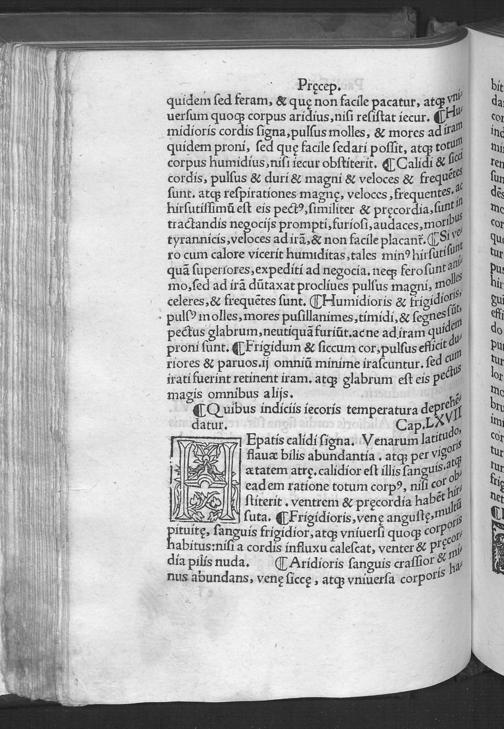 Pręcep.
quidem sed feram, & quę non facile pacatur, atqꝫ vni-
uersum quoqꝫ corpus aridius, nisi resistat iecur. ¶Hu-
midioris cordis signa, pulsus molles, & mores ad iram
quidem proni, sed quę facile sedari possit, atqꝫ totum
corpus humidius, nisi iecur obstiterit. ¶Calidi & sicci
cordis, pulsus & duri & magni & veloces & frequētes
sunt. atqꝫ respirationes magnę, veloces, frequentes. ac
hirsutissimū est eis pectꝰ, similiter & pręcordia, sunt in
tractandis negocijs prompti, furiosi, audaces, moribus
tyrannicis, veloces ad irā, & non facile placant̄. ¶Si ve-
ro cum calore vicerit humiditas, tales minꝰ hirsuti sunt
quā superiores, expediti ad negocia. neqꝫ fero sunt ani-
mo, sed ad irā dūtaxat procliues pulsus magni, molles
celeres, & frequētes sunt. ¶Humidioris & frigidioris,
pulsꝰ molles, mores pusillanimes, timidi, & segnes sūt,
pectus glabrum, neutiquā furiūt. ac ne ad iram quidem
proni sunt. ¶Frigidum & siccum cor, pulsus efficit du-
riores & paruos. ij omniū minime irascuntur. sed cum
irati fuerint retinent iram. atqꝫ glabrum est eis pectus
magis omnibus alijs.
¶Quibus indicijs iecoris temperatura deprehē-
datur. Cap. LXVII
HEpatis calidi signa. Venarum latitudo,
flauæ bilis abundantia. atqꝫ per vigoris
ætatem atrę. calidior est illis sanguis. atqꝫ
eadem ratione totum corpꝰ, nisi cor ob-
stiterit. ventrem & pręcordia habēt hir-
suta. ¶Frigidioris, venę angustę, multū
pituitę, sanguis frigidior, atqꝫ vniuersi quoqꝫ corporis
habitus: nisi a cordis influxu calescat, venter & pręcor-
dia pilis nuda. ¶Aridioris sanguis crassior & mi-
nus abundans, venę siccę, atqꝫ vniuersa corporis ha-